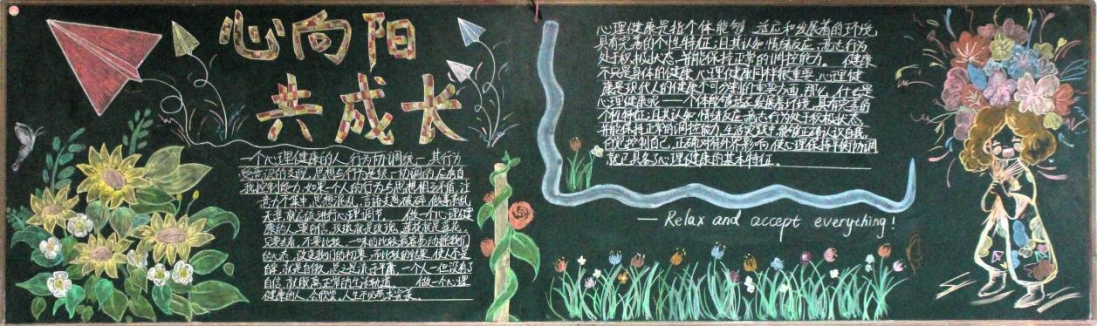 心向阳
共成长
一个心理健康的人,行为协调统一,其行为
受意识的支配,思想与行为是统一协调的,并有自
我控制能力。如果一个人的行为与思想相互矛盾,注
意力不集中,思想混乱,语言支离破碎,做事杂乱
无章,就应该进行心理调节。 做一个心理健
康的人,要自信,玫瑰就是玫瑰,莲花就是莲花,
只要去看,不要比较。一味的比较最容易动摇我们
的心态,改变我们的初衷。而比较的结果,使人不是
自卑,就是自傲,总之流于平庸。一个人一但没有了
自信,就脱离正常的生活轨道。 做一个心理
健康的人,会欣赏,人生不必尽求完美。
心理健康是指个体能够 适应和发展着的环境,
具有完善的个性特征;且其认知,情绪反应,意志行为
处于积极状态,并能保持正常的调控能力。 健康
不只是身体的健康,心理健康同样很重要,心理健
康是现代人的健康不可分割的重要方面,那么,什么是
心理健康呢——个体能够适应发展着环境,具有完善的
个性特征;且其认知,情绪反应,意志行为处于积极状态,
并能保持正常的调控能力。生活实践中,能够正确认识自我,
自觉控制自己,正确对待外界影响,使心理保持平衡协调,
就已具备心理健康的基本特征。
— Relax and accept everything!